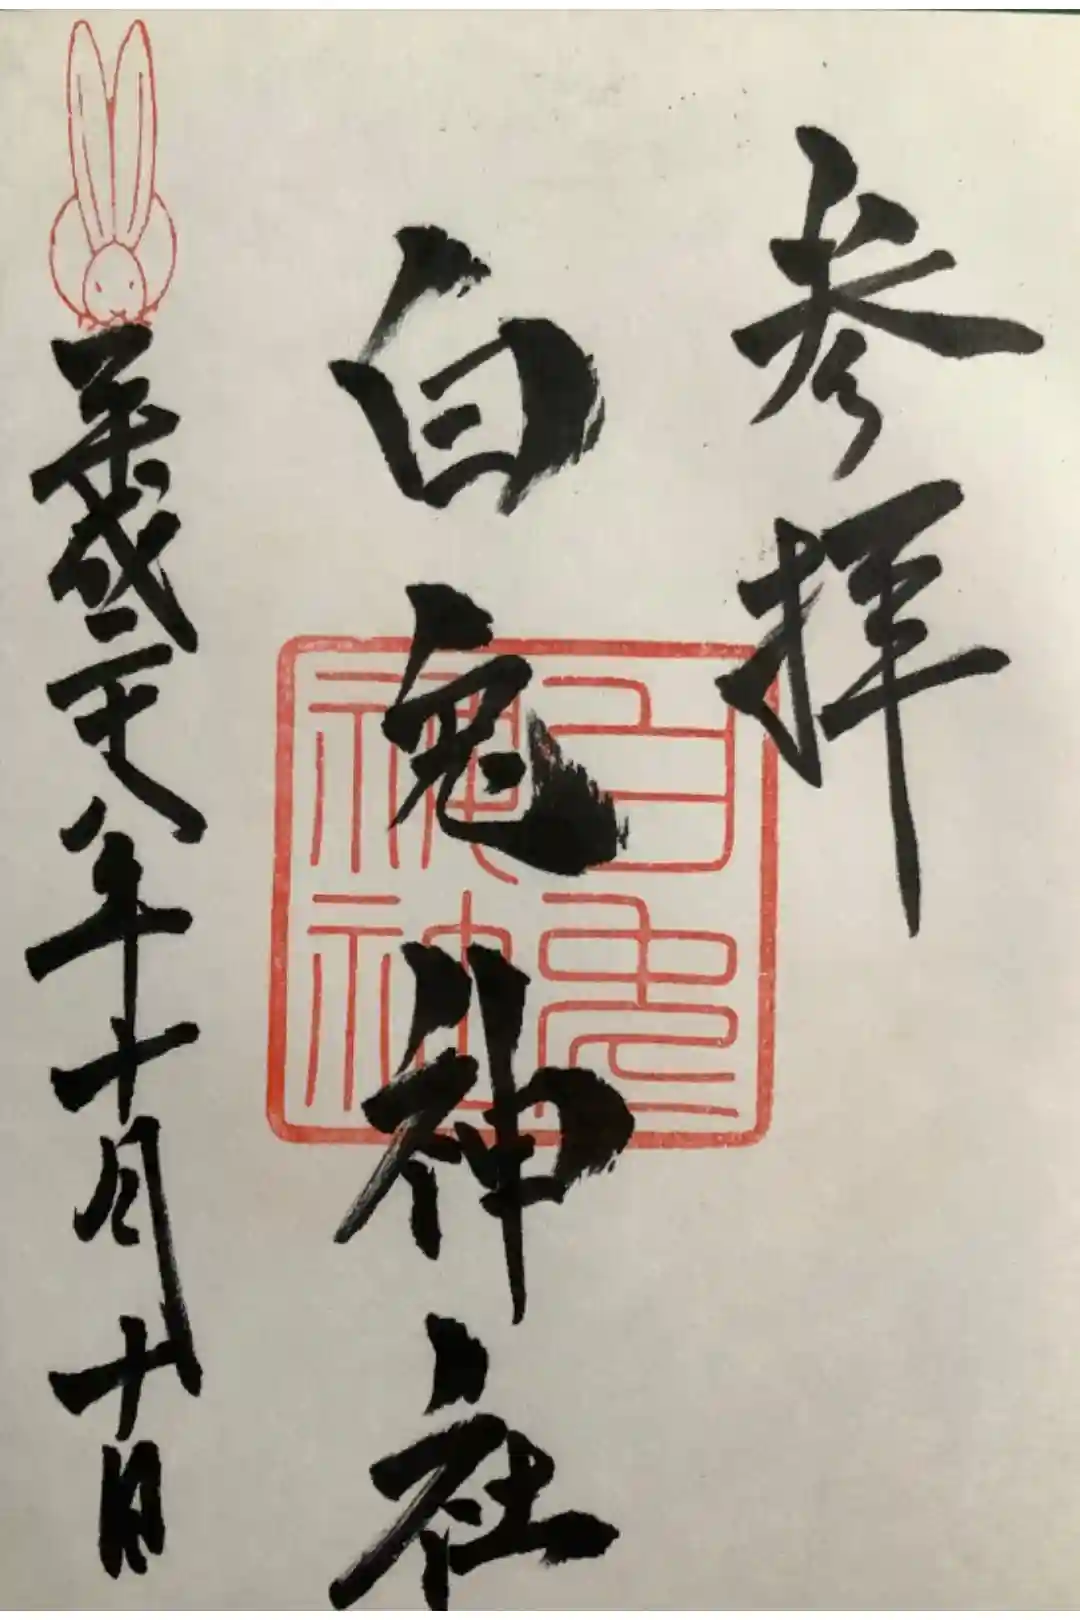 参拝
白兎神社
平成二十八年十月十日
白兎
神社